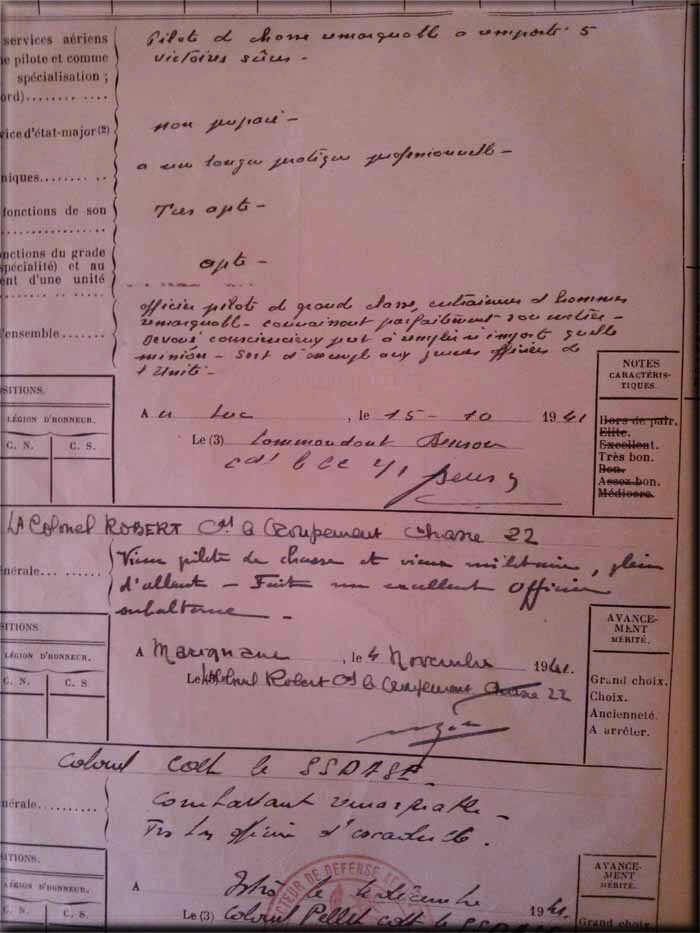 services aériens
e pilote et comme
spécialisation ;
ord)
Pilote de chasse remarquable a remporté 5
victoires sûres -
vice d'état-major (2)
non préparé -
niques
a une longue pratique professionnelle -
fonctions de son
Très apte -
onctions du grade
spécialité) et au
ent d'une unité
apte -
l'ensemble
officier pilote de grand classe, entraineur d'hommes
remarquable - connaissant parfaitement son métier -
Dévoué consciencieux prêt à remplir n'importe quelle
mission - Sert d'exemple aux jeunes officiers de
l'Unité -
SITIONS.
LÉGION D'HONNEUR.
C. N. C. S.
A u Luc , le 15 - 10 1941
Le (3) Commandant
NOTES
CARACTÉRIS-
TIQUES.
Hors de pair.
Elite.
Excellent.
Très bon.
Bon.
Assez bon.
Médiocre.
Colonel ROBERT Ct le Groupement Chasse 22
énérale
Vieux pilote de chasse et vieux militaire, plein
d'allant - Fait un excellent officier
subalterne -
SITIONS
LÉGION D'HONNEUR.
C. N. C. S
A Marignane , le 4 Novembre 1941.
Le Colonel Robert Ct le Groupement Chasse 22
AVANCE-
MENT
MÉRITÉ.
Grand choix.
Choix.
Ancienneté.
A arrêter.
Colonel Cdt le
énérale
Combattant remarquable -
Très bon officier d'escadrille.
SITIONS.
LÉGION D'HONNEUR.
C. N. C. S.
A Istres le décembre 1941.
Le (3) Colonel Pellet Cdt le
CTEUR DE DÉFENSE AÉ
AVANCE-
MENT
MÉRITÉ.
Grand choix